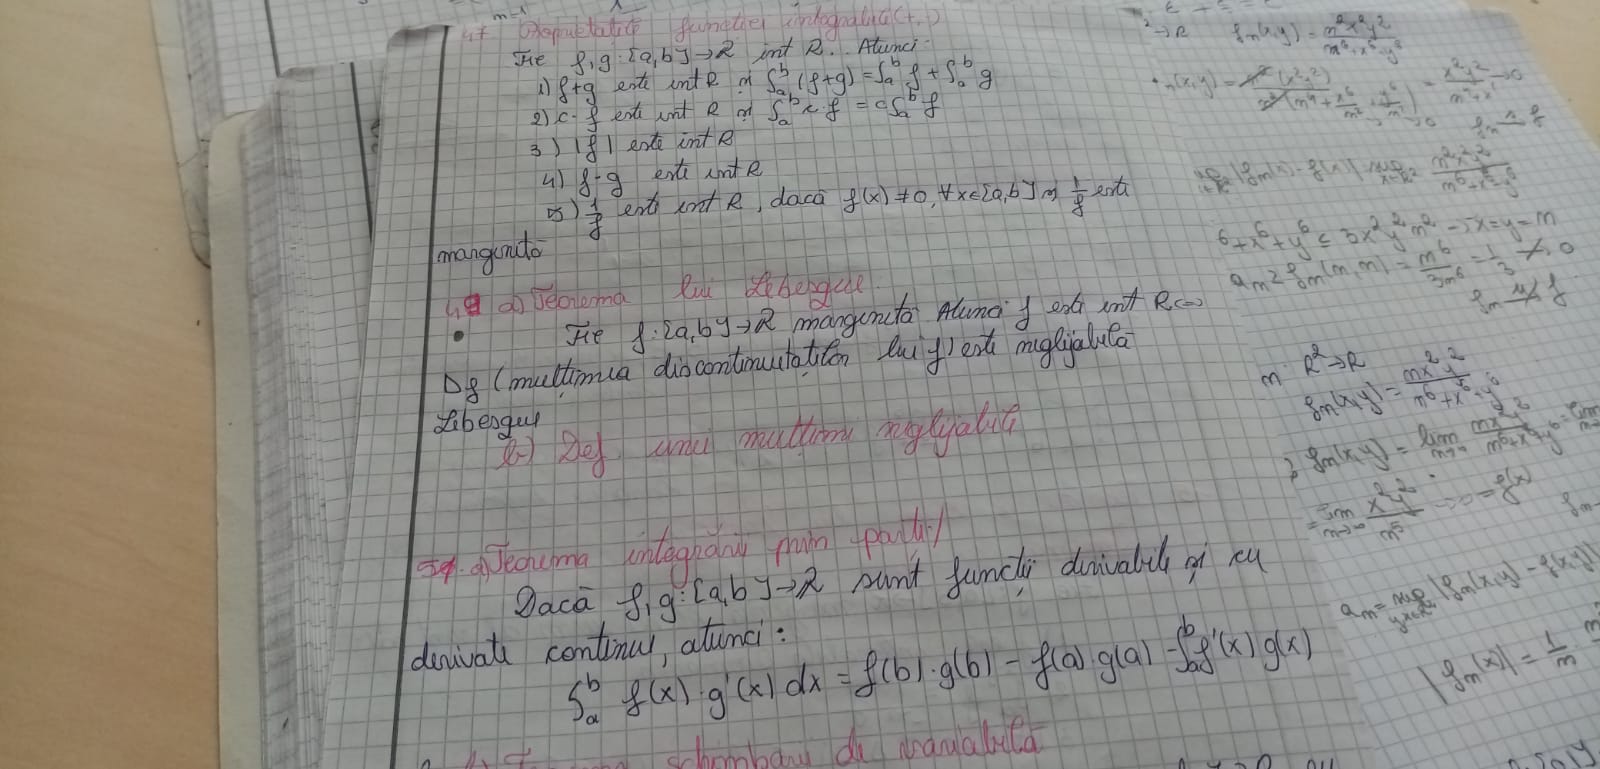 47 Proprietatile functiei integrabile(+,·)
Fie f,g:[a,b]→R int R. Atunci:
1) f+g este int R și ∫ₐᵇ (f+g) = ∫ₐᵇ f + ∫ₐᵇ g
2) c·f este int R și ∫ₐᵇ c·f = c∫ₐᵇ f
3) |f| este int R
4) f·g este int R
5) 1/f este int R, dacă f(x)≠0, ∀x∈[a,b] și 1/f este
marginită
49 a) Teorema lui Lebesgue.
• Fie f:[a,b]→R marginită Atunci f este int R⇔
Df (mulțimea discontinuitatilor lui f) este neglijabilă
Lebesgue
b) Def. unei multimi neglijabile
51. a) Teorema integrării prin parti/
Dacă f,g:[a,b]→R sunt funcții derivabile și cu
derivate continue, atunci:
∫ₐᵇ f(x)·g'(x) dx = f(b)·g(b) − f(a)·g(a) − ∫ₐᵇ f'(x) g(x)
schimbarii de variabilă
→R fn(x,y) = n²x²y²/n⁶+x⁶+y⁶
6+x⁶+y⁶ ≤ 3x²y²n² → x=y=n
an ≥ fn(n,n) = n⁶/3n⁶ = 1/3 ↛ 0
R²→R
fn(x,y) = nx²y²/n⁶+x⁶+y⁶
fn(x,y) = lim n→∞ nx²y²/n⁶+x⁶+y⁶ = lim
= lim n→∞ x²y²/n⁵ = 0 = f(x)
an = sup |fn(x,y) − f(x,y)|
|fn(x)| = 1/n